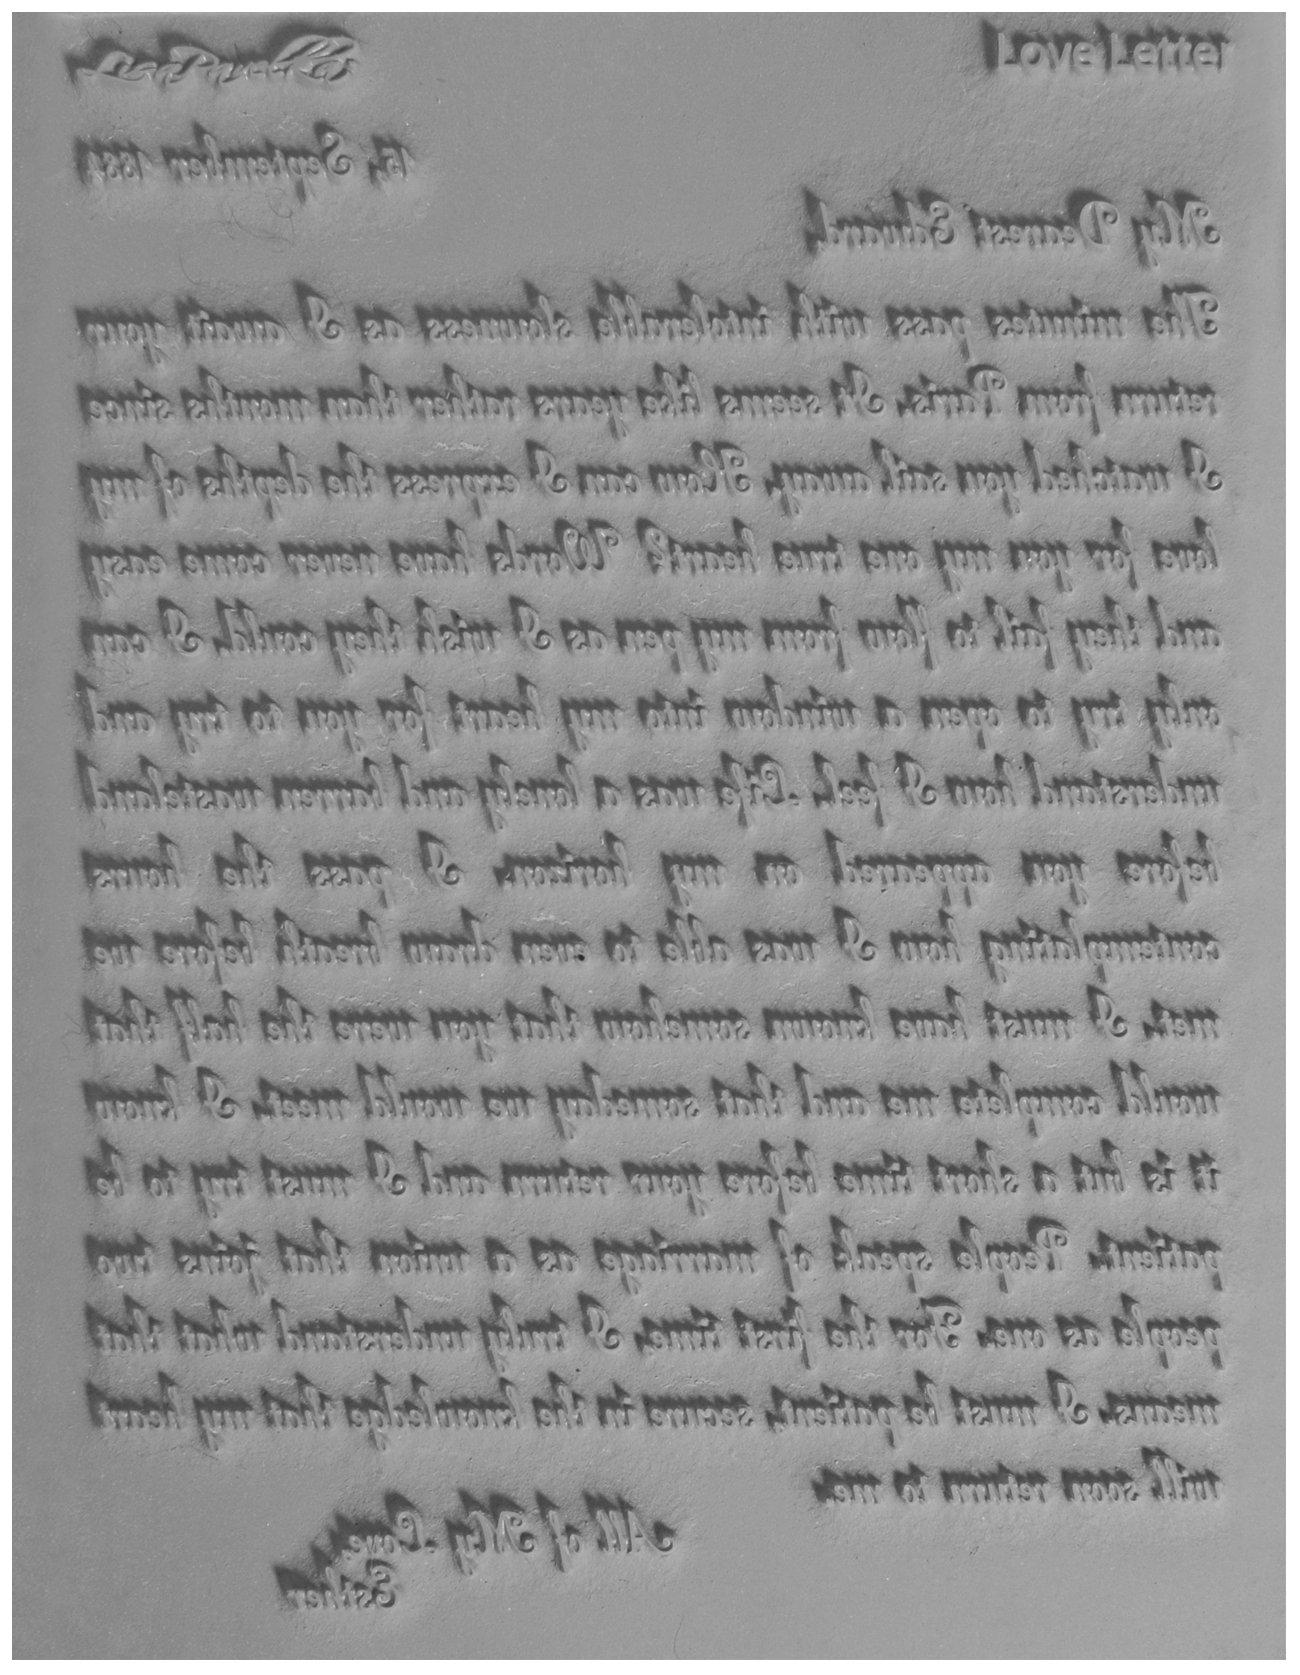 Love Letter
15, September
My Dearest Edward,
The minutes pass with intolerable slowness as I await your
return from Paris. It seems like years rather than months since
I watched you sail away. How can I express the depths of my
love for you my one true heart? Words have never come easy
and they fail to flow from my pen as I wish they could. I can
only try to open a window into my heart for you to try and
understand how I feel. Life was a lonely and barren wasteland
before you appeared on my horizon. I pass the hours
contemplating how I was able to even draw breath before we
met. I must have known somehow that you were the half that
would complete me and that someday we would meet. I know
it is but a short time before your return and I must try to be
patient. People speak of marriage as a union that joins two
people as one. For the first time, I truly understand what that
means. I must be patient, secure in the knowledge that my heart
will soon return to me.
All of My Love,
Esther